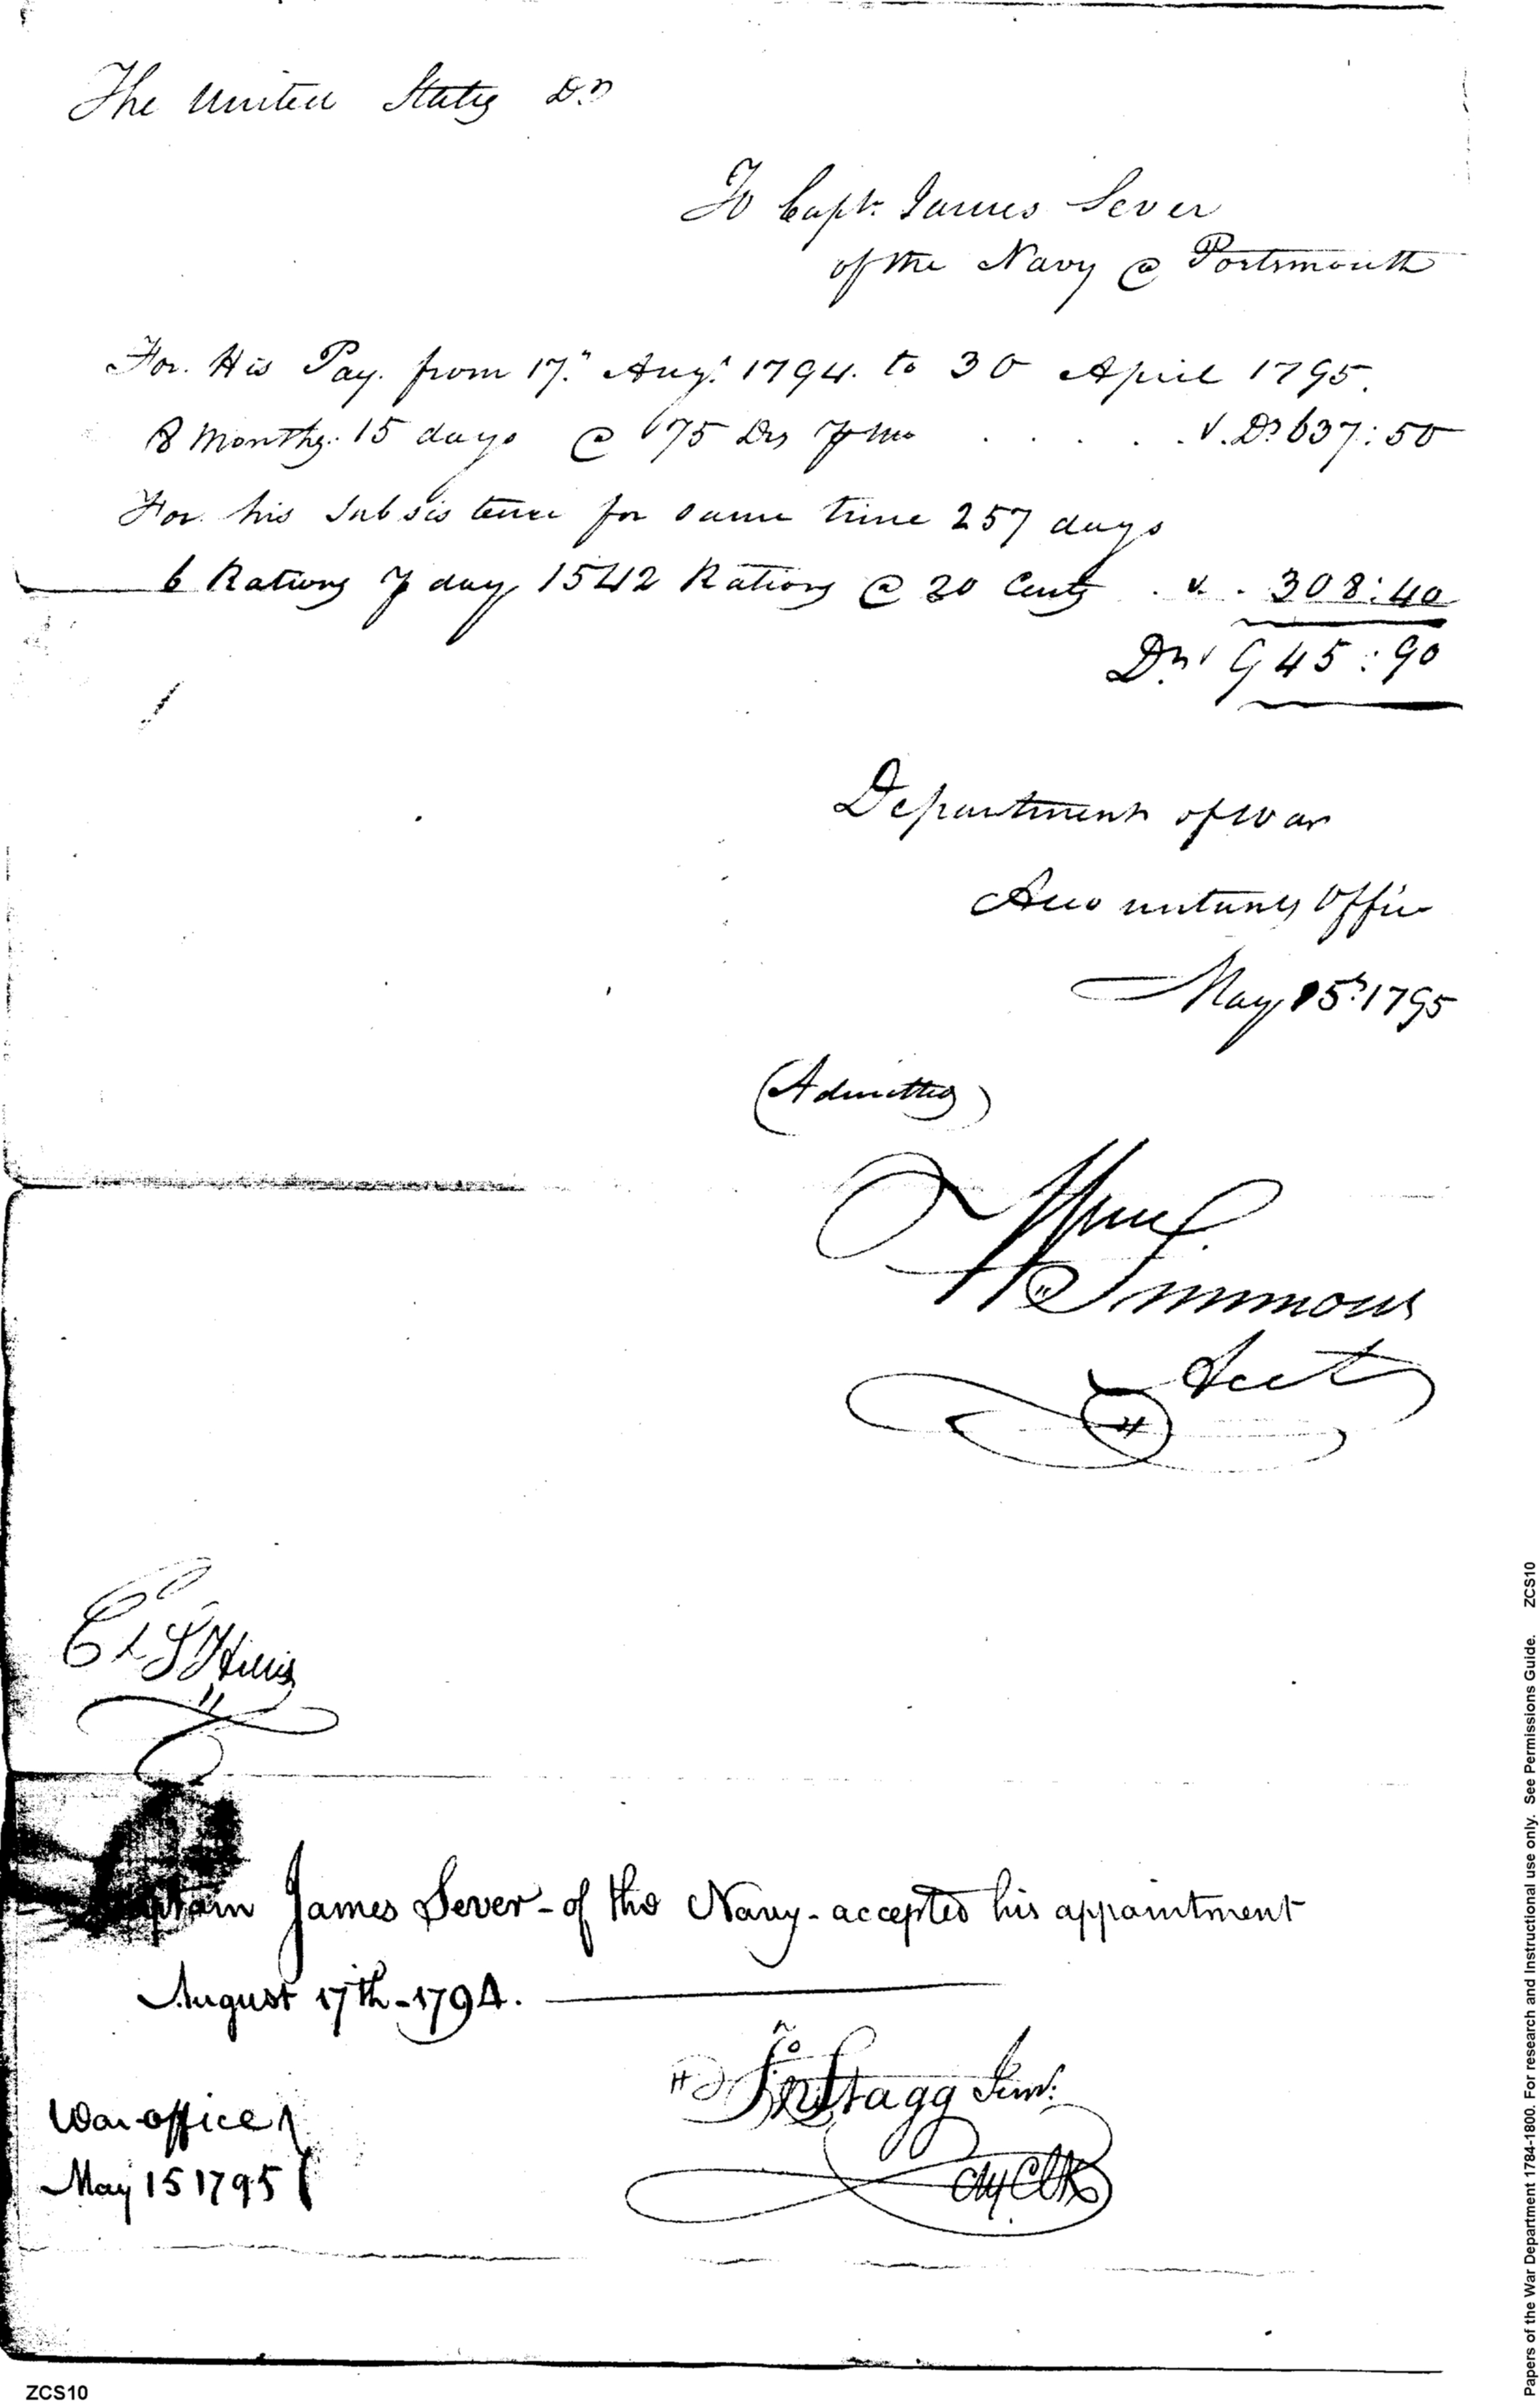 The United States Dr
To Capt. James Sever
of the Navy @ Portsmouth
For His Pay. from 17th Augt 1794. to 30 April 1795.
8 Months. 15 days @ 75 Drs p mo . . . . . Ds 637:50
For his Subsistence for same time 257 days
6 Rations p day 1542 Rations @ 20 Cents . . 308:40
Drs 945:90
Department of War
Accountants Office
May 15th 1795
(Admitted)
Wm
Simmons
Acct
James Sever - of the Navy - accepted his appointment
August 17th - 1794.
Jno Stagg Junr.
War office
May 15 1795
Ch Clk
ZCS10
Papers of the War Department 1784-1800. For research and Instructional use only. See Permissions Guide. ZCS10